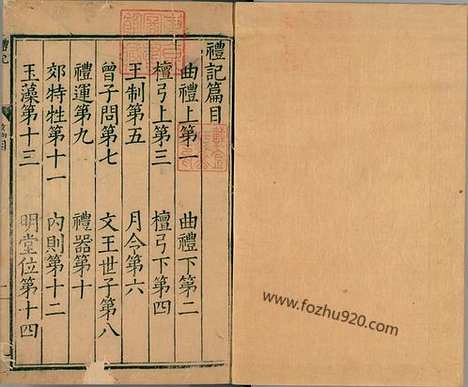 禮記篇目
曲禮上第一 曲禮下第二
檀弓上第三 檀弓下第四
王制第五 月令第六
曾子問第七 文王世子第八
禮運第九 禮器第十
郊特牲第十一 內則第十二
玉藻第十三 明堂位第十四
www.fozhu920.com